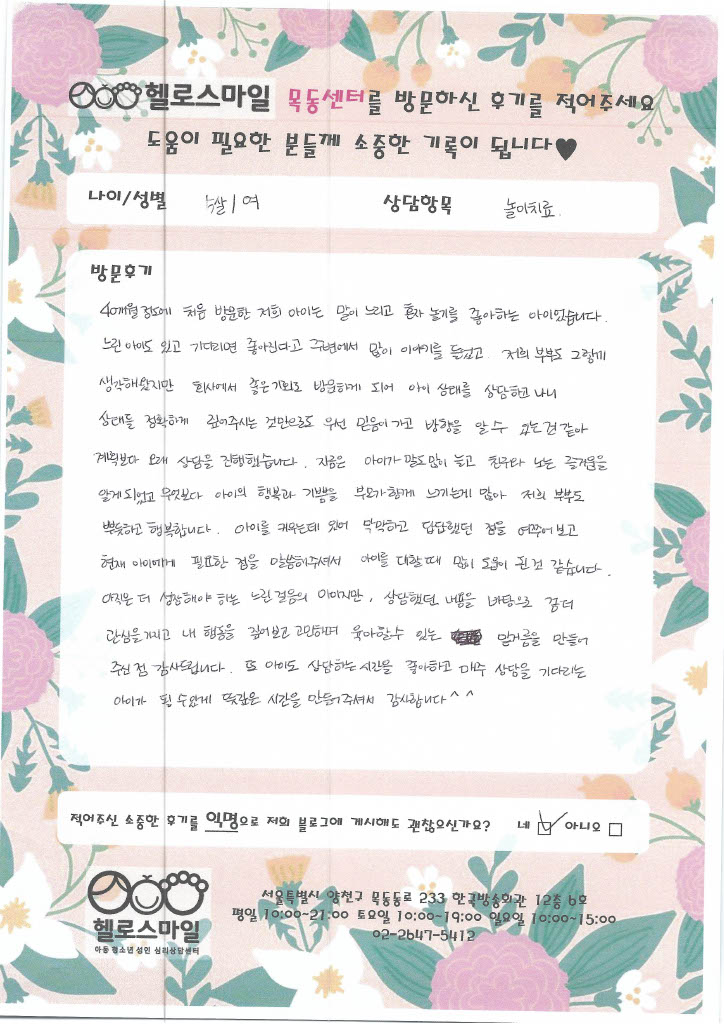 헬로스마일 목동센터를 방문하신 후기를 적어주세요
도움이 필요한 분들께 소중한 기록이 됩니다♥
나이/성별 살/여 상담항목 놀이치료
방문후기
40개월정도에 처음 방문한 저희 아이는 말이 느리고 혼자 놀기를 좋아하는 아이였습니다.
느린 아이도 있고 기다리면 좋아진다고 주변에서 많이 이야기를 들었고. 저희 부부도 그렇게
생각해왔지만 회사에서 좋은기회로 방문하게 되어 아이 상태를 상담하고 나니
상태를 정확하게 짚어주시는 것만으로도 우선 믿음이 가고 방향을 알 수 있는것 같아
계획보다 오래 상담을 진행했습니다. 지금은 아이가 말도많이 늘고 친구와 노는 즐거움을
알게 되었고 무엇보다 아이의 행복과 기쁨을 부모가 함께 느끼는게 많아 저희 부부도
뿌듯하고 행복합니다. 아이를 키우는데 있어 막막하고 답답했던 점을 여쭈어보고
현재 아이에게 필요한 점을 말씀해주셔서 아이를 대할때 많이 도움이 된것 같습니다.
아직은 더 성장해야 하는 느린 걸음의 아이지만, 상담했던 내용을 바탕으로 좀더
관심을가지고 내 행동을 짚어보고 고민하며 육아할수 있는 밑거름을 만들어
주신 점 감사드립니다. 또 아이도 상담하는 시간을 좋아하고 매주 상담을 기다리는
아이가 될 수있게 뜻깊은 시간을 만들어주셔서 감사합니다^^
적어주신 소중한 후기를 익명으로 저희 블로그에 게시해도 괜찮으신가요? 네 ☑ 아니오 □
헬로스마일
아동 청소년 성인 심리상담센터
서울특별시 양천구 목동동로 233 한국방송회관 12층 6호
평일 10:00~21:00 토요일 10:00~19:00 일요일 10:00~15:00
02-2647-5412